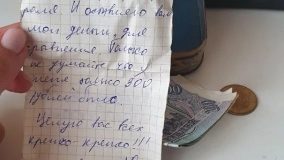 реля. И оставшего вам
мои деньги, для
правления, только
не думайте, что у
меня только 300
рублей было.
Целую вас всех
крепко-крепко!!!